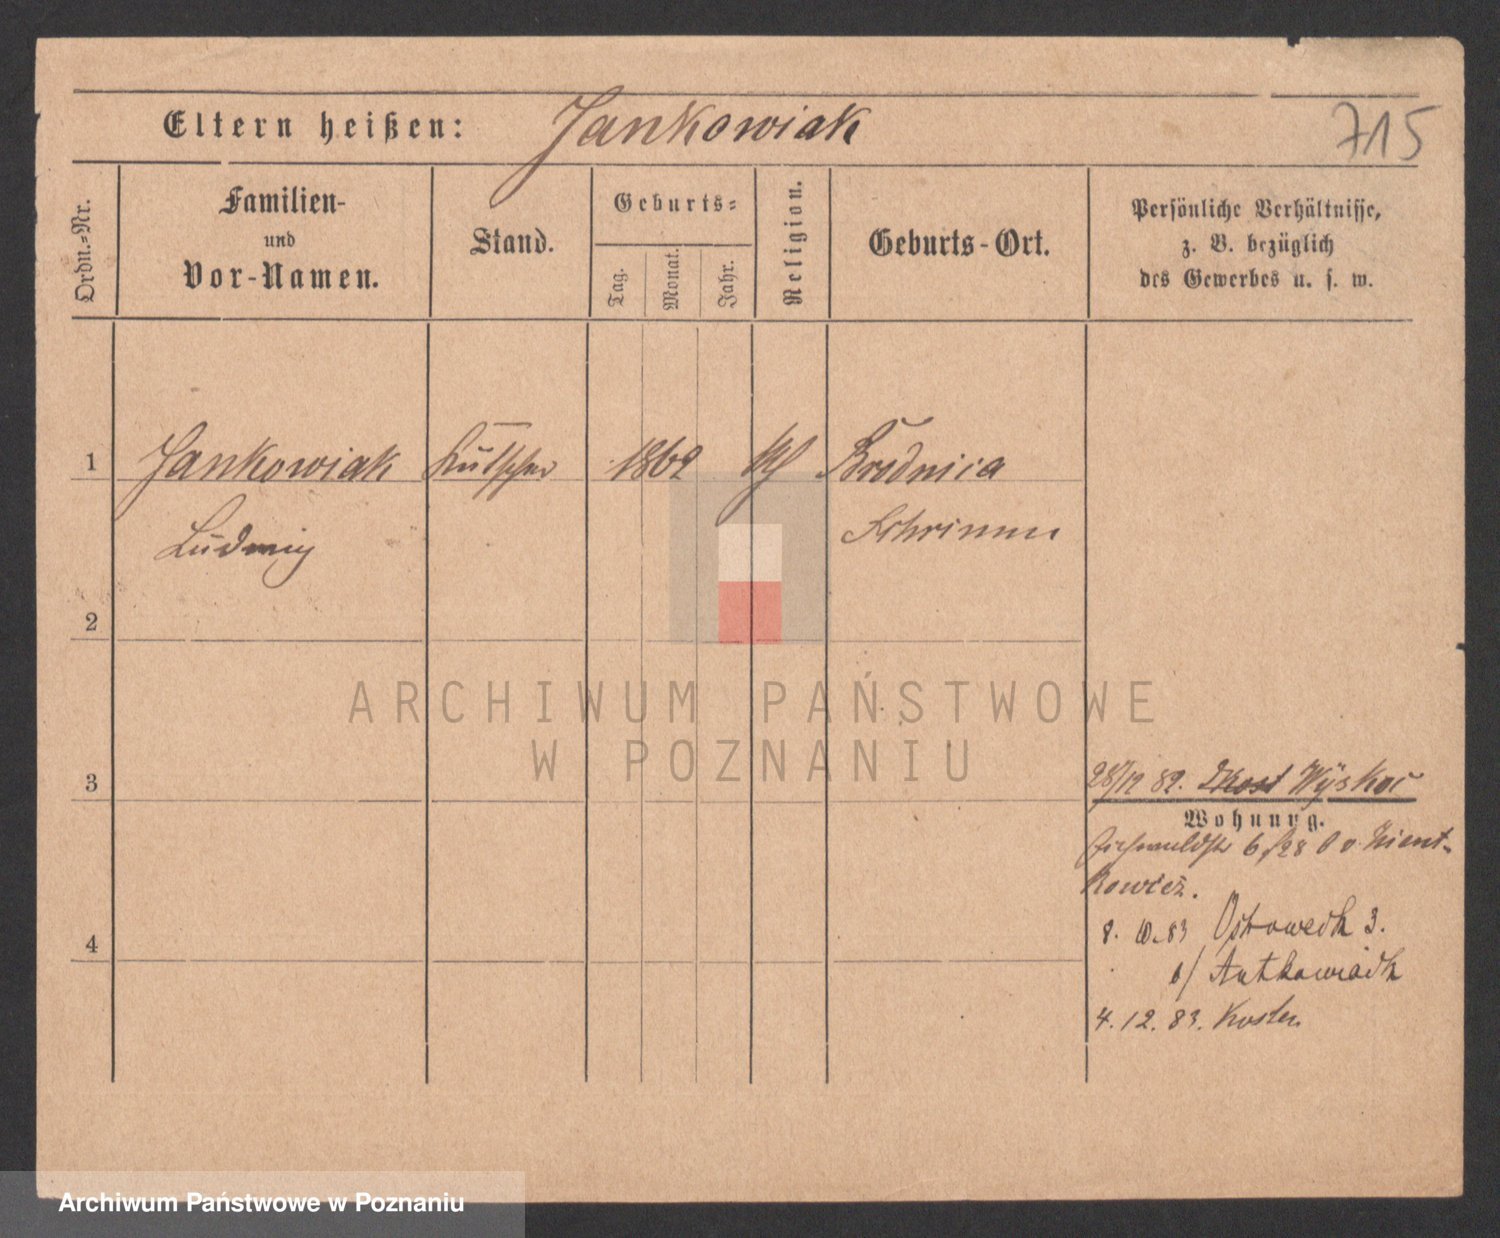 Eltern heißen: Jankowiak
715
Ordn.-Nr.
Familien-
und
Vor-Namen.
Stand.
Geburts-
Tag.
Monat.
Jahr.
Religion.
Geburts-Ort.
Persönliche Verhältnisse,
z. B. bezüglich
des Gewerbes u. s. w.
1 Jankowiak Kutscher 1862 kth Brodnica
Ludwig Schrimm
2
3
28/12 82. Wyskoc
Wohnung.
6/28 b v. Kient-
kowicz.
8. 10. 83 Ostrowedk 3.
4
b/ Antkowiack
4. 12. 83. Kosten
ARCHIWUM PAŃSTWOWE
W POZNANIU
Archiwum Państwowe w Poznaniu